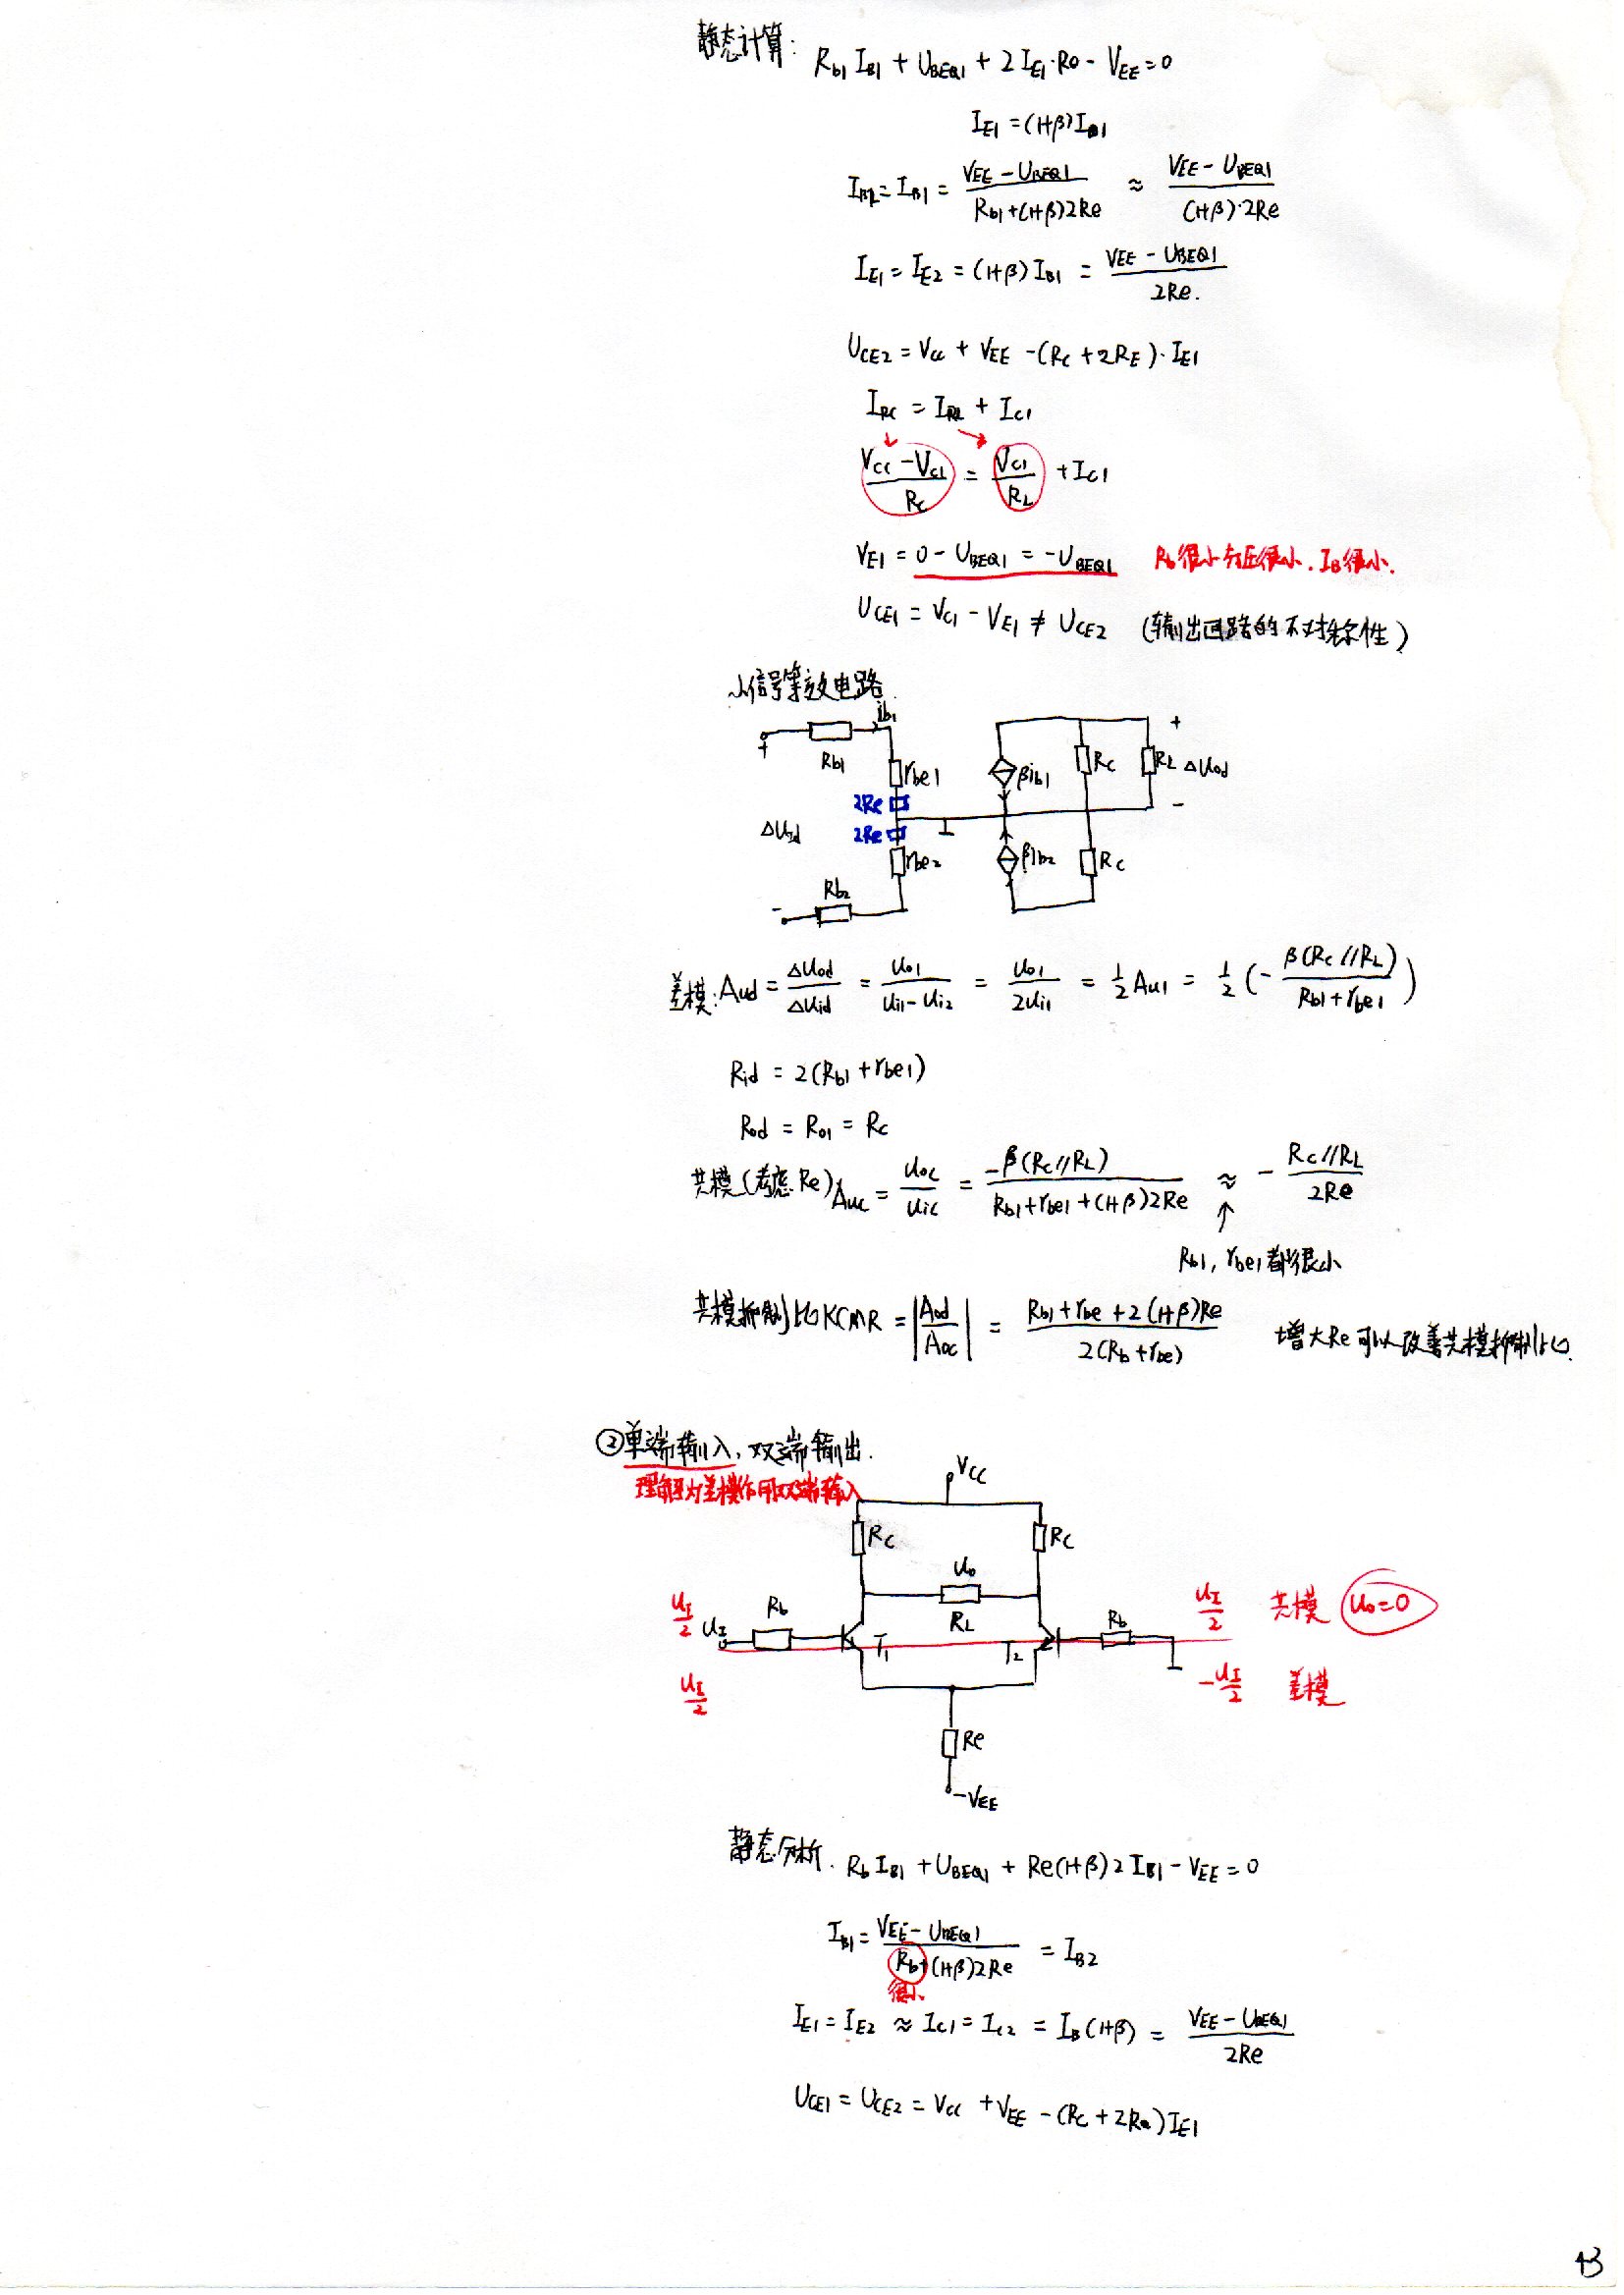 静态计算: Rb1 IB1 + UBEQ1 + 2 IE1·Re - VEE = 0
IE1 = (1+β)IB1
IB2 = IB1 = (VEE - UBEQ1)/(Rb1+(1+β)2Re) ≈ (VEE - UBEQ1)/((1+β)·2Re)
IE1 = IE2 = (1+β) IB1 = (VEE - UBEQ1)/(2Re.)
UCE2 = VCC + VEE - (RC + 2RE)·IE1
IRC = IRL + IC1
(VCC - VC1)/RC = VC1/RL + IC1
VE1 = 0 - UBEQ1 = -UBEQ1 Rb很小 分压很小. IB很小.
UCE1 = VC1 - VE1 ≠ UCE2 (输出回路的不对称性)
小信号等效电路
ib1
+ Rb1 rbe1 βib1 RC RL + ΔUod -
2Re
ΔUId 2Re
rbe2 βib2 RC
- Rb2
差模: Aud = ΔUod/ΔUid = uo1/(ui1 - ui2) = uo1/(2ui1) = 1/2 Au1 = 1/2 (- β(RC//RL)/(Rb1+rbe1))
Rid = 2(Rb1 + rbe1)
Rod = Ro1 = RC
共模(考虑Re) Auc = uoc/uic = -β(RC//RL)/(Rb1+rbe1+(1+β)2Re) ≈ - (RC//RL)/(2Re)
↑
Rb1, rbe1都很小
共模抑制比KCMR = |Aod/Aoc| = (Rb1+rbe+2(1+β)Re)/(2(Rb+rbe)) 增大Re可以改善共模抑制比.
②单端输入, 双端输出.
理解为差模作用双端输入
VCC
RC RC
uo
RL
uI/2 uI Rb T1 T2 Rb uI/2 共模 uo=0
uI/2 -uI/2 差模
Re
-VEE
静态分析. Rb IB1 + UBEQ1 + Re(1+β) 2 IB1 - VEE = 0
IB1 = (VEE - UBEQ1)/(Rb+(1+β)2Re) = IB2
很小
IE1 = IE2 ≈ IC1 = IC2 = IB(1+β) = (VEE - UBEQ1)/(2Re)
UCE1 = UCE2 = VCC + VEE - (RC + 2Re) IE1
43